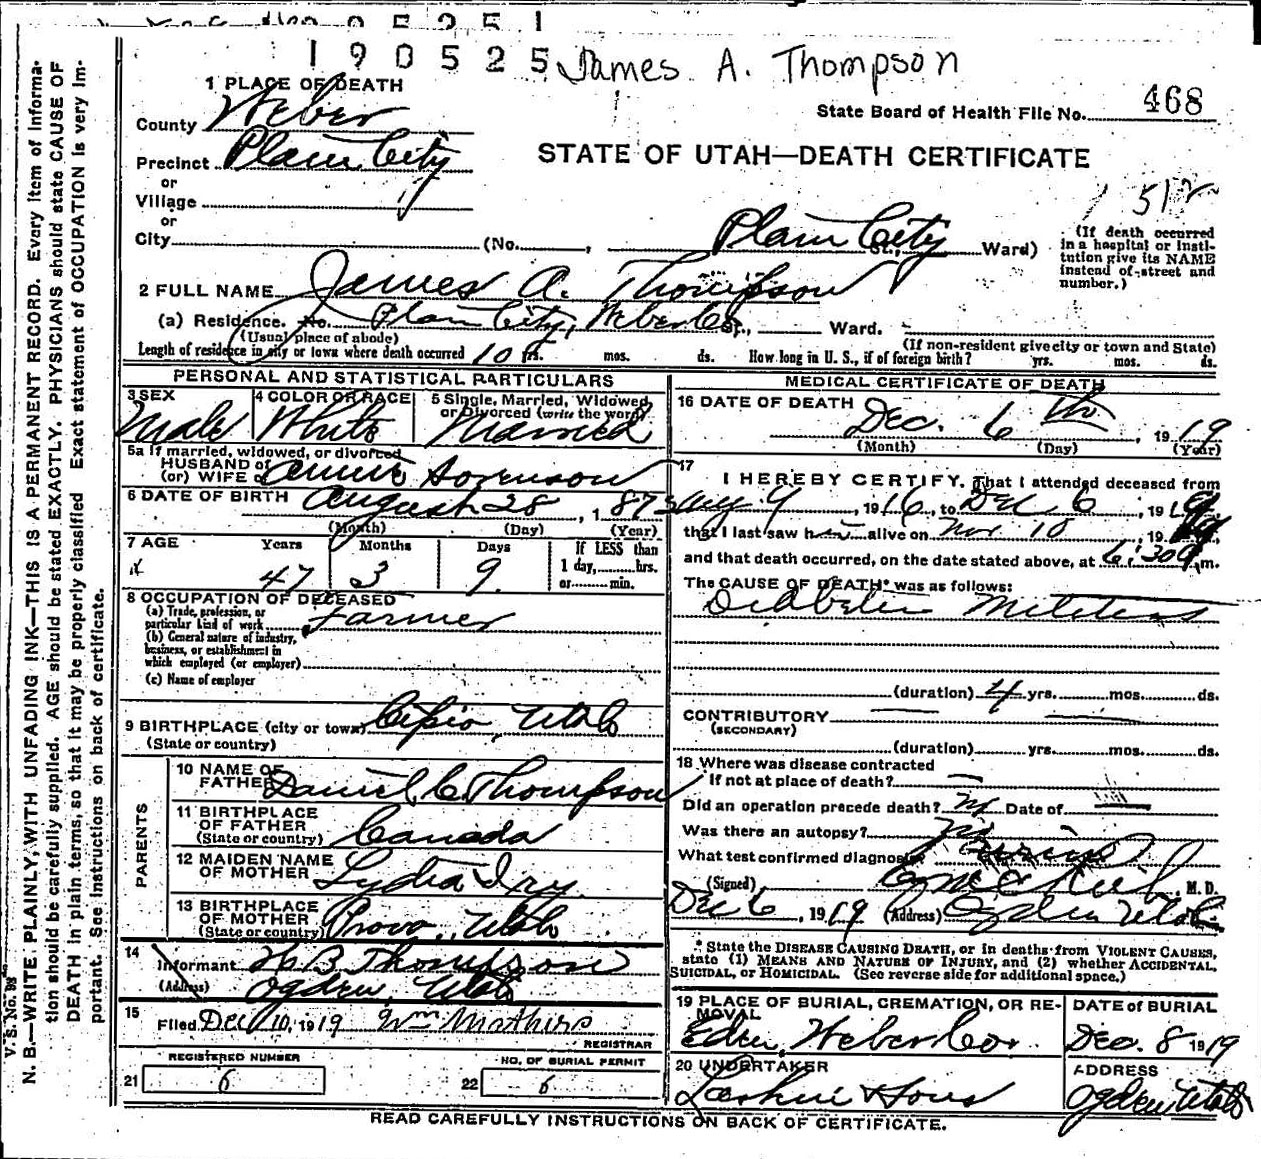 190525
James A. Thompson
1 PLACE OF DEATH
State Board of Health File No. 468
County Weber
Precinct Plain City
STATE OF UTAH—DEATH CERTIFICATE
or
Village
or
City (No. , Plain City St., Ward)
(If death occurred in a hospital or insti-
tution give its NAME
instead of street and
number.)
2 FULL NAME James A. Thompson
(a) Residence. No. Plain City, Weber Co St., Ward.
(Usual place of abode) (If non-resident give city or town and State)
Length of residence in city or town where death occurred 10 yrs. mos. ds. How long in U. S., if of foreign birth? yrs. mos. ds.
PERSONAL AND STATISTICAL PARTICULARS
3 SEX Male
4 COLOR OR RACE White
5 Single, Married, Widowed
or Divorced (write the word) Married
5a If married, widowed, or divorced
HUSBAND of
(or) WIFE of Annie Sorenson
6 DATE OF BIRTH August 28, 187
(Month) (Day) (Year)
7 AGE Years Months Days If LESS than
1 day, hrs.
or min.
47 3 9
8 OCCUPATION OF DECEASED
(a) Trade, profession, or
particular kind of work Farmer
(b) General nature of industry,
business, or establishment in
which employed (or employer)
(c) Name of employer
9 BIRTHPLACE (city or town) Scipio, Utah
(State or country)
PARENTS
10 NAME OF
FATHER Daniel C Thompson
11 BIRTHPLACE
OF FATHER
(State or country) Canada
12 MAIDEN NAME
OF MOTHER Lydia Ivy
13 BIRTHPLACE
OF MOTHER
(State or country) Provo, Utah
14 Informant H B Thompson
(Address) Ogden, Utah
15 Filed Dec 10, 1919 Wm Mathers
REGISTRAR
REGISTERED NUMBER NO. OF BURIAL PERMIT
21 6 22 6
MEDICAL CERTIFICATE OF DEATH
16 DATE OF DEATH
Dec. 6th, 1919
(Month) (Day) (Year)
17
I HEREBY CERTIFY, That I attended deceased from
Aug 9, 1916, to Dec 6, 1919
that I last saw him alive on Nov 10, 1919
and that death occurred, on the date stated above, at 6:30 m.
The CAUSE OF DEATH* was as follows:
Diabetes Mellitus
(duration) 4 yrs. mos. ds.
CONTRIBUTORY
(SECONDARY)
(duration) yrs. mos. ds.
18 Where was disease contracted
If not at place of death?
Did an operation precede death? no Date of
Was there an autopsy? no
What test confirmed diagnosis? urine
(Signed) M. D.
Dec 6, 1919 (Address) Ogden Utah
* State the DISEASE CAUSING DEATH, or in deaths from VIOLENT CAUSES,
state (1) MEANS AND NATURE OF INJURY, and (2) whether ACCIDENTAL,
SUICIDAL, or HOMICIDAL. (See reverse side for additional space.)
19 PLACE OF BURIAL, CREMATION, OR RE-
MOVAL
Eden, Weber Co.
DATE of BURIAL
Dec. 8 1919
20 UNDERTAKER
& Sons
ADDRESS
Ogden Utah
READ CAREFULLY INSTRUCTIONS ON BACK OF CERTIFICATE.
N. B.—WRITE PLAINLY, WITH UNFADING INK—THIS IS A PERMANENT RECORD. Every item of informa-
tion should be carefully supplied. AGE should be stated EXACTLY. PHYSICIANS should state CAUSE OF
DEATH in plain terms, so that it may be properly classified. Exact statement of OCCUPATION is very im-
portant. See instructions on back of certificate.